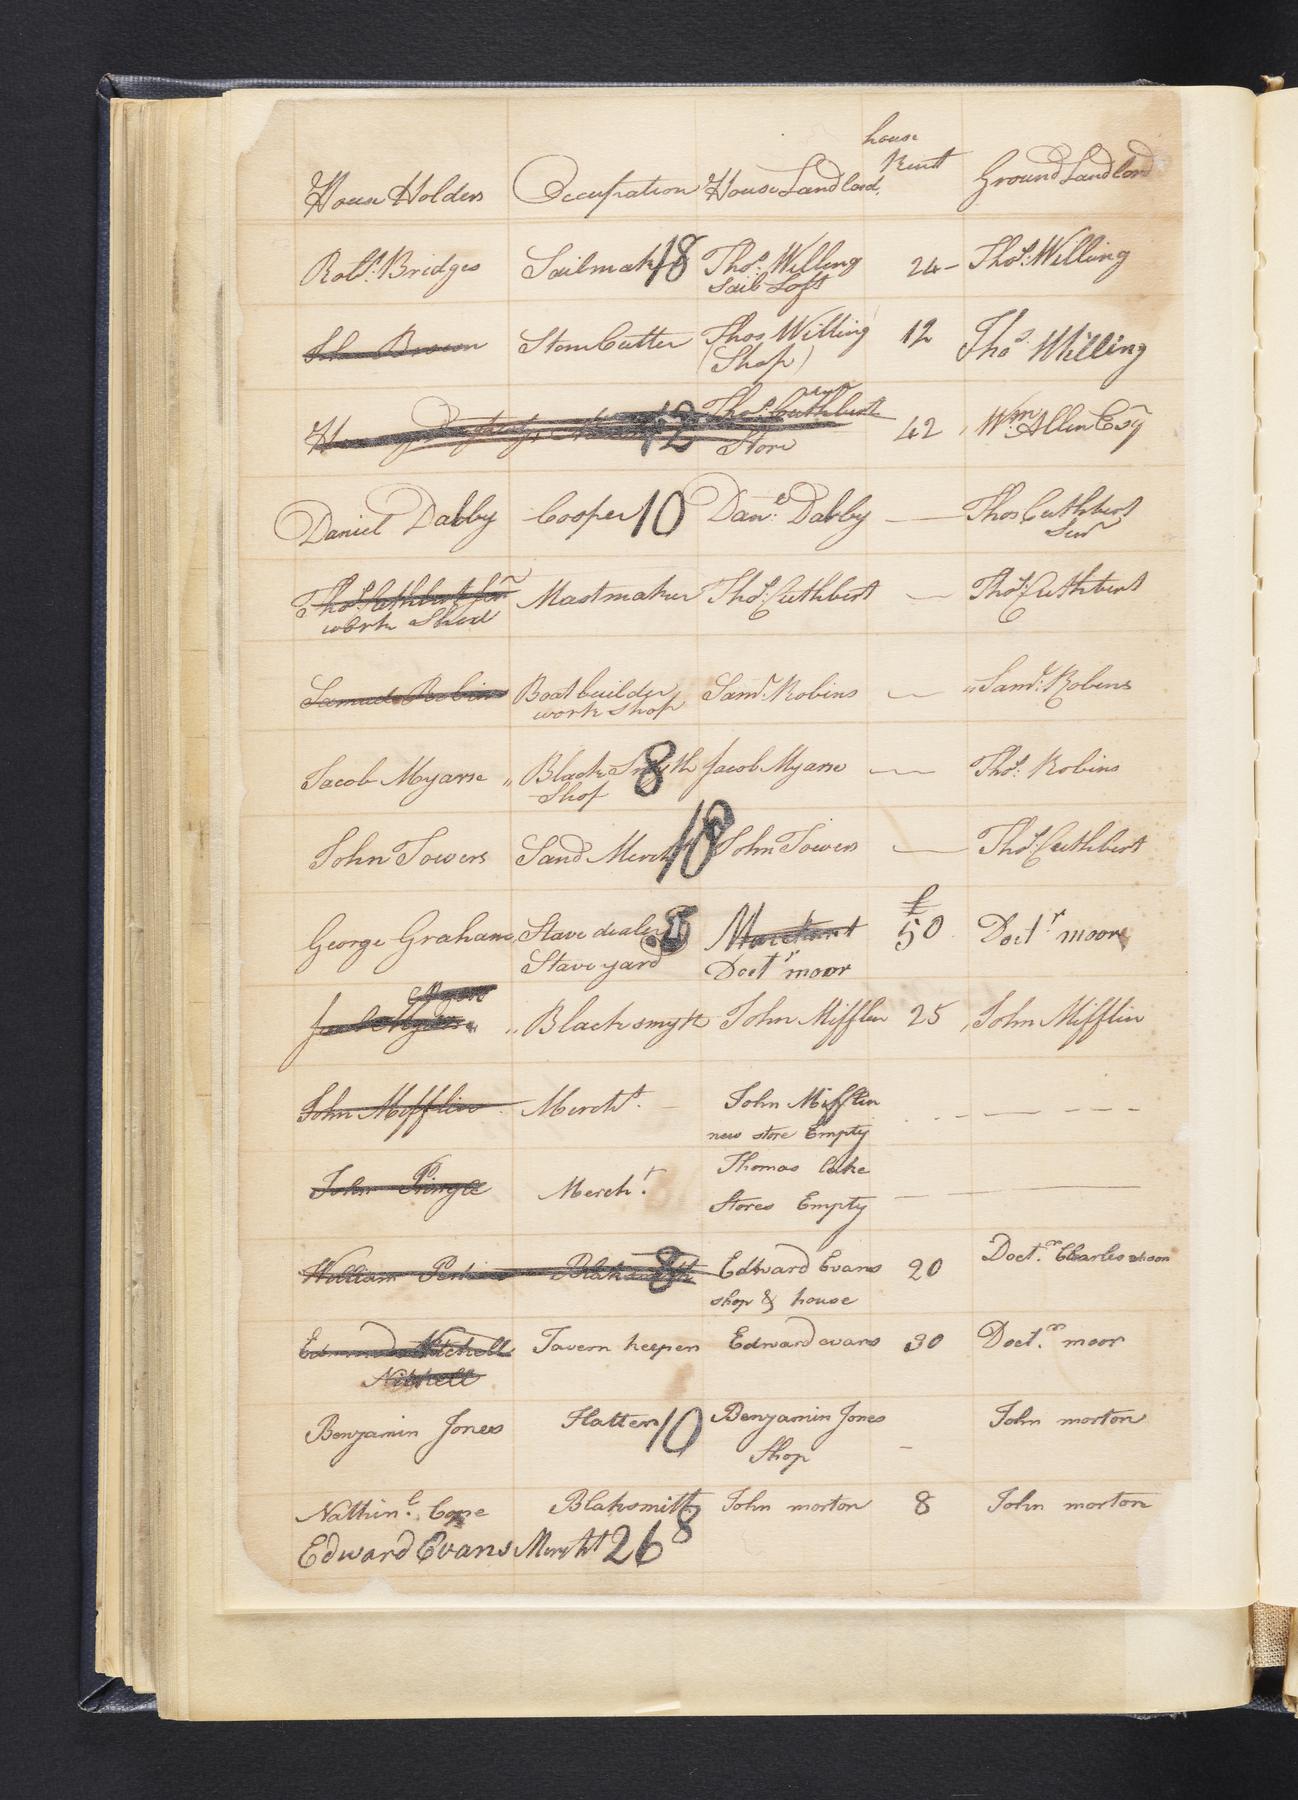 House Holders Occupation House Landlord, house Rentt Ground Landlord
Robt. Bridges Sailmak 18 Thos. Willing 24 - Thos. Willing
Sail Loft
Jh Brown Stone Cutter Thos Willing 12 Thos. Willing
(Shop)
12 Thos. Cuthbert senr 42 Wm. Allen Esqr
Store
Daniel Dabby Cooper 10 Danl. Dabby — Thos Cuthbert
Senr
Thos. Cuthbert Senr Mastmaker Thos. Cuthbert — Thos. Cuthbert
work Shed
Samuel Robins Boatbuilder Saml. Robins — Saml. Robins
work shop
Jacob Myarse Black Smyth 8 Jacob Myarse — Thos. Robins
Shop
John Towers Sand Mercht 18 John Towers — Thos. Cuthbert
George Graham, Stave dealer Marchant £ 50 Doctr moore
Stave yard Doctr moor
Blacksmyth John Mifflin 25 John Mifflin
John Mifflin Mercht. John Mifflin - — — -
new store Empty
John Pringle Mercht. Thomas lake
Stores Empty — —
William Blaksmith 8 Edward Evans 20 Doctr. Charles moor
shop & house
Edmund Nitchell Tavern keeper Edward evans 30 Doctr. moor
Nitchell
Benjamin Jones Hatter 10 Benjamin Jones - John morton
Shop
Nathinl. Cope Blaksmitt 8 John morton 8 John morton
Edward Evans Mercht 26